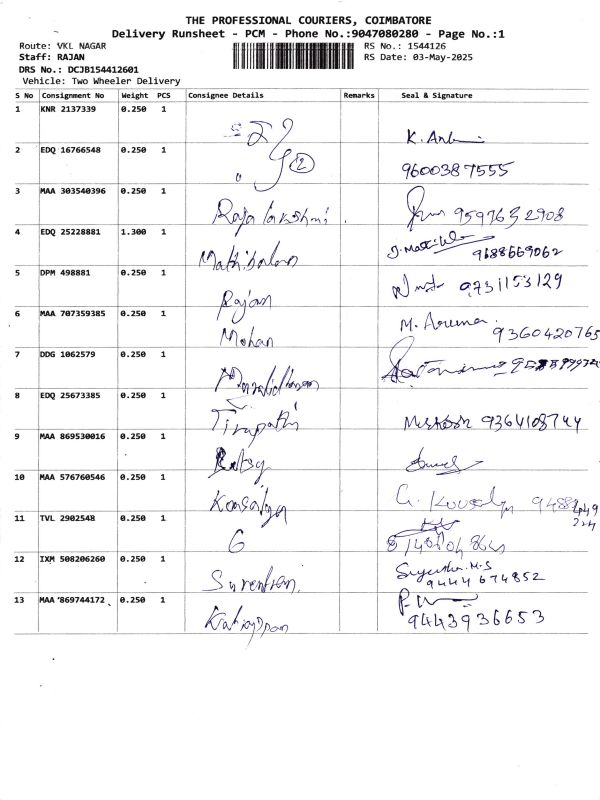 THE PROFESSIONAL COURIERS, COIMBATORE
Delivery Runsheet - PCM - Phone No.:9047080280 - Page No.:1
Route: VKL NAGAR RS No.: 1544126
Staff: RAJAN RS Date: 03-May-2025
DRS No.: DCJB154412601
Vehicle: Two Wheeler Delivery
S No Consignment No Weight PCS Consignee Details Remarks Seal & Signature
1 KNR 2137339 0.250 1
2 EDQ 16766548 0.250 1 2 9600387555
3 MAA 303540396 0.250 1 Rajalakshmi 9597632908
4 EDQ 25228881 1.300 1 Mathibalan 9688669062
5 DPM 498881 0.250 1 Rajan 9731153129
6 MAA 707359385 0.250 1 Mohan M. Aruna 9360420765
7 DDG 1062579 0.250 1
8 EDQ 25673385 0.250 1 Tirupathi 9364108744
9 MAA 869530016 0.250 1
10 MAA 576760546 0.250 1 Kousalya
11 TVL 2902548 0.250 1 G
12 IXM 508206260 0.250 1 Surentran. 9444674852
13 MAA '869744172 0.250 1 9443936653